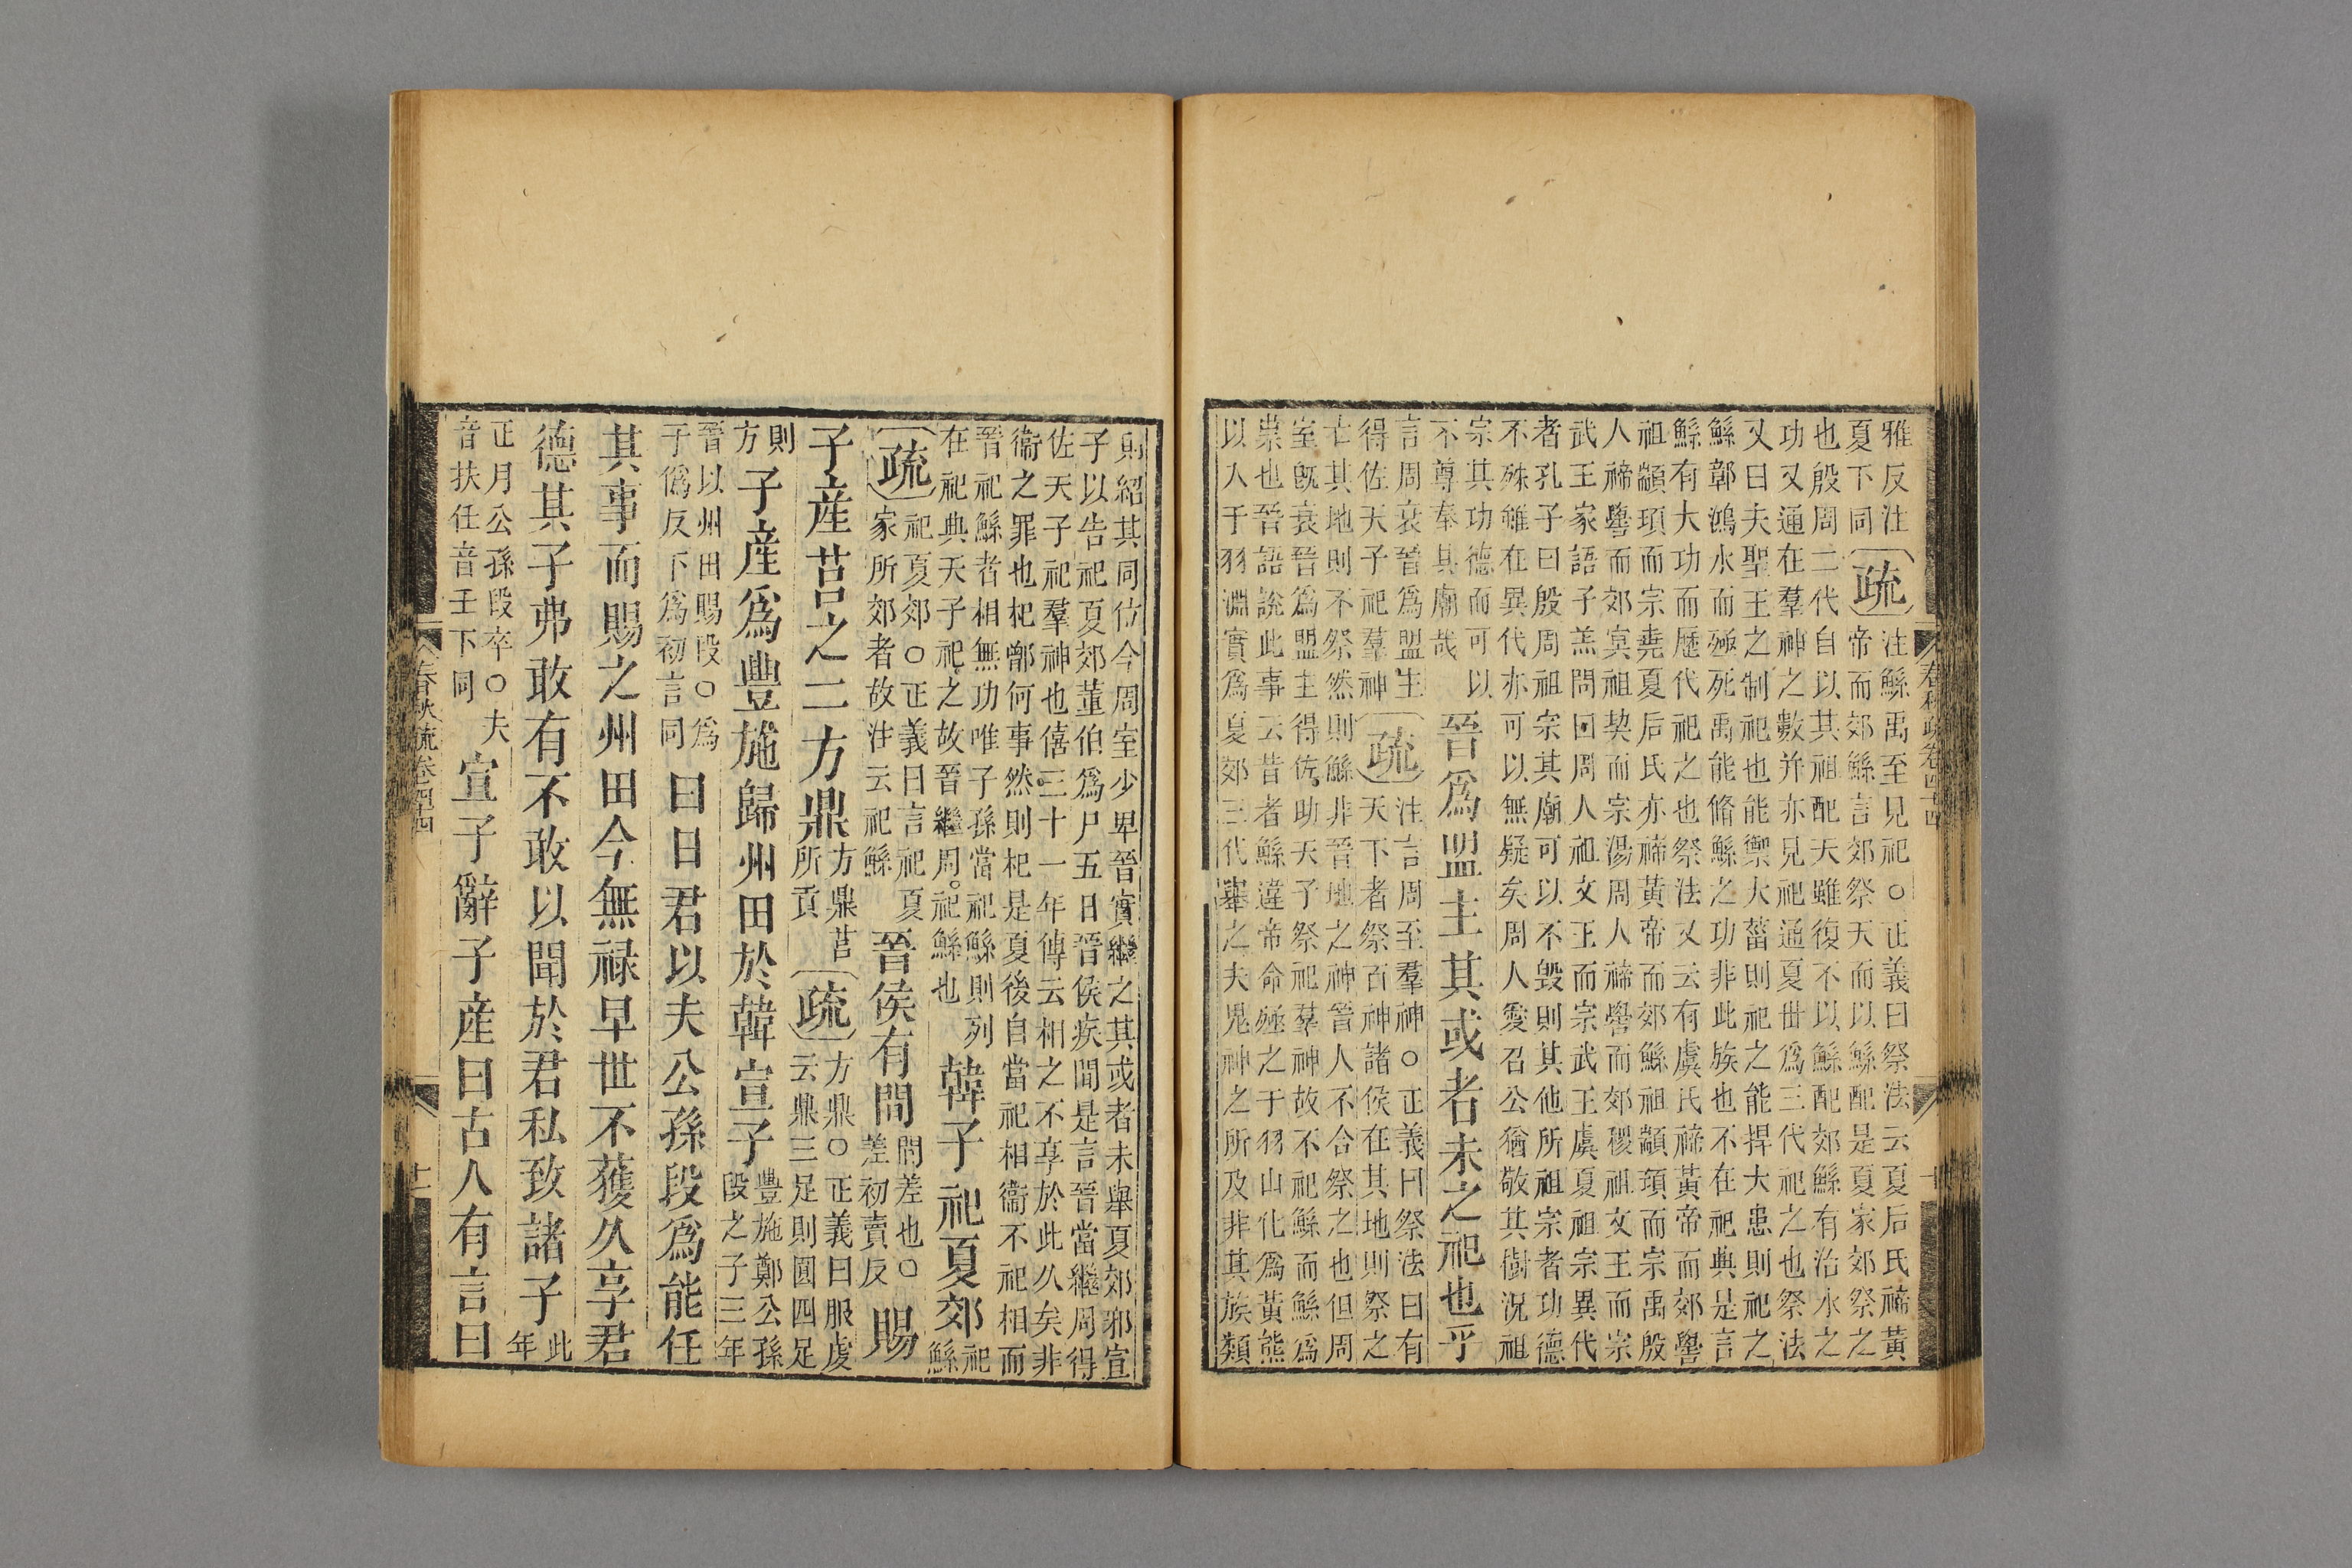 雅反注
夏下同
疏
注鯀禹至見祀○正義曰祭法云夏后氏禘黃
帝而郊鯀言郊祭天而以鯀配是夏家郊祭之
也殷周二代自以其祖配天雖復不以鯀配郊鯀有治水之
功又通在羣神之數并亦見祀通夏世爲三代祀之也祭法
又曰夫聖王之制祀也能禦大菑則祀之能捍大患則祀之
鯀鄣鴻水而殛死禹能脩鯀之功非此族也不在祀典是言
鯀有大功而歷代祀之也祭法又云有虞氏禘黃帝而郊嚳
祖顓頊而宗堯夏后氏亦禘黃帝而郊鯀祖顓頊而宗禹殷
人禘嚳而郊冥祖契而宗湯周人禘嚳而郊稷祖文王而宗
武王家語子羔問曰周人祖文王而宗武王虞夏祖宗異代
者孔子曰殷周祖宗其廟可以不毀則其他所祖宗者功德
不殊雖在異代亦可以無疑矣周人愛召公猶敬其樹況祖
宗其功德而可以
不尊奉其廟哉
晉爲盟主其或者未之祀也乎
言周衰晉爲盟主
得佐天子祀羣神
疏
注言周至羣神○正義曰祭法曰有
天下者祭百神諸侯在其地則祭之
亡其地則不祭然則鯀非晉地之神晉人不合祭之也但周
室旣衰晉爲盟主得佐助天子祭祀羣神故不祀鯀而鯀爲
祟也晉語說此事云昔者鯀違帝命殛之于羽山化爲黃熊
以入于羽淵實爲夏郊三代舉之夫鬼神之所及非其族類
春秋疏卷四十四
十
則紹其同位今周室少卑晉實繼之其或者未舉夏郊邪宣
子以告祀夏郊董伯爲尸五日晉侯疾間是言晉當繼周得
佐天子祀羣神也僖三十一年傳云相之不享於此久矣非
衞之罪也杞鄫何事然則杞是夏後自當祀相衞不祀相而
晉祀鯀者相無功唯子孫當祀鯀則列
在祀典天子祀之故晉繼周祀鯀也
韓子祀夏郊
祀
鯀
疏
祀夏郊○正義曰言祀夏
家所郊者故注云祀鯀
晉侯有間
間差也○
差初賣反
賜
子產莒之二方鼎
方鼎莒
所貢
疏
方鼎○正義曰服虔
云鼎三足則圓四足
則
方
子產爲豐施歸州田於韓宣子
豐施鄭公孫
段之子三年
晉以州田賜段○爲
于僞反下爲初言同
曰日君以夫公孫段爲能任
其事而賜之州田今無祿早世不獲久享君
德其子弗敢有不敢以聞於君私致諸子
此
年
正月公孫段卒○夫
音扶任音壬下同
宣子辭子產曰古人有言曰
春秋疏卷四十四
十一